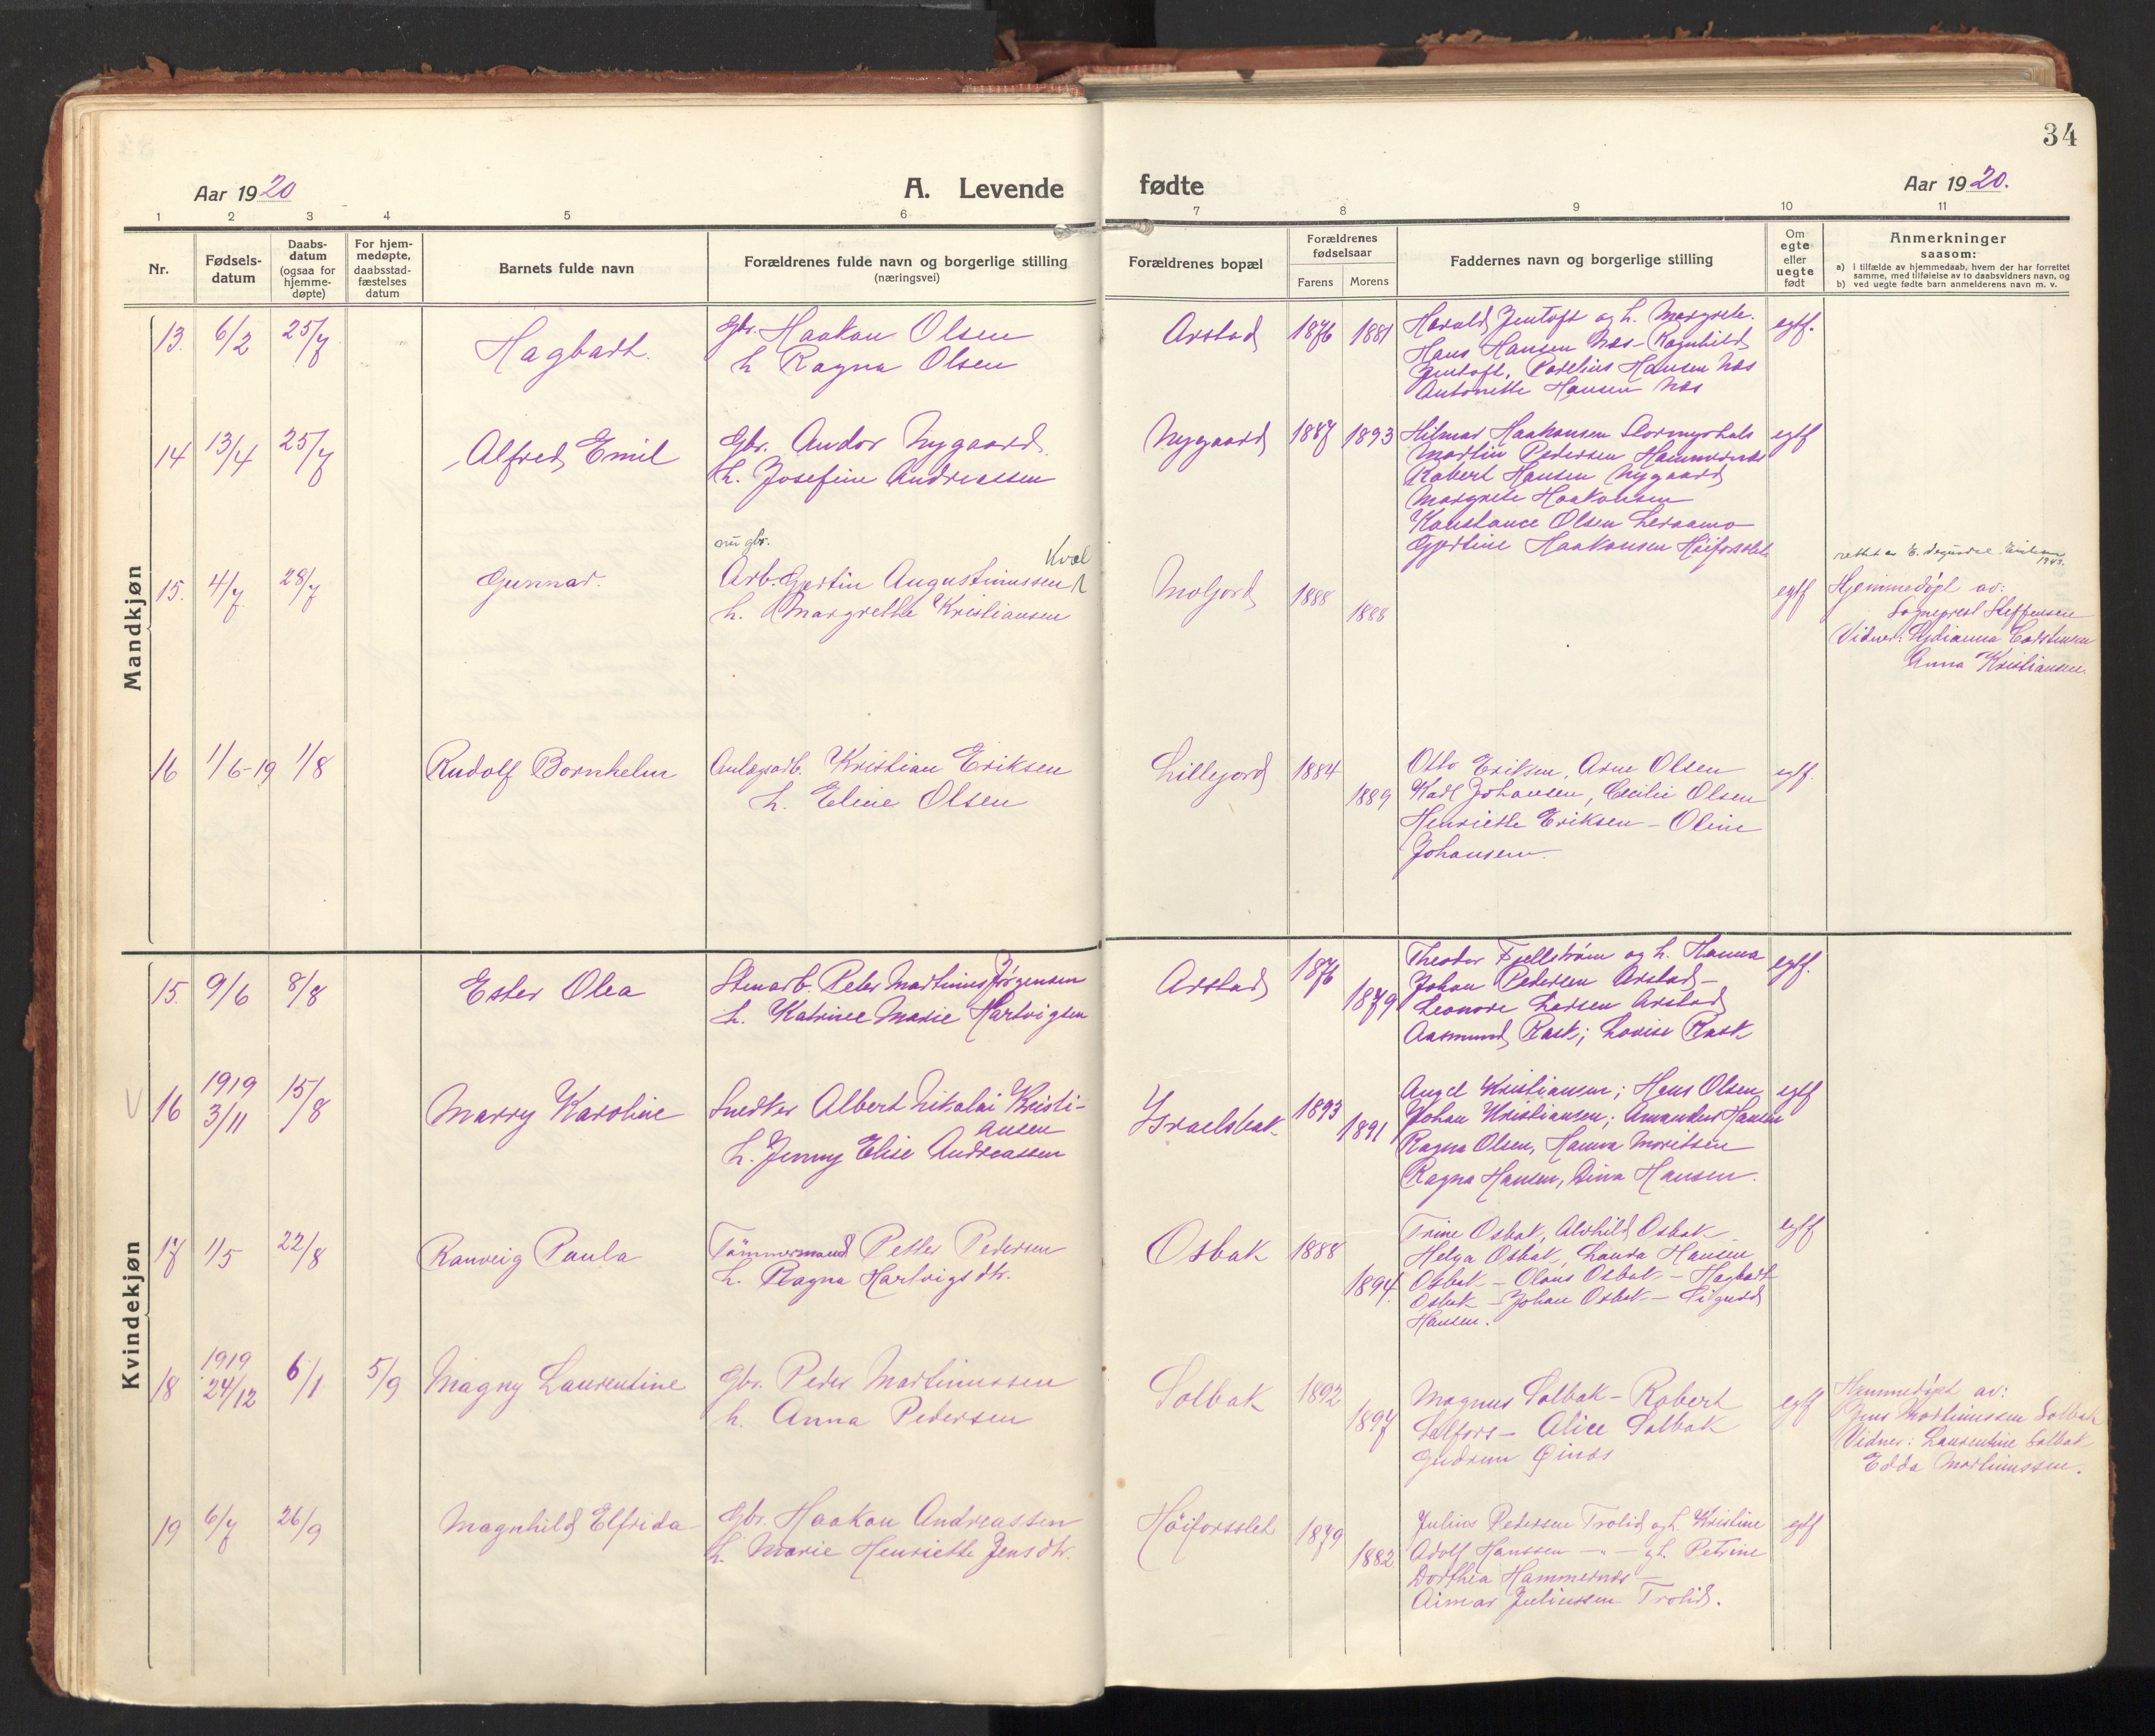 34
Aar 1920
A. Levende fødte
Aar 1920.
1 2 3 4 5 6 7 8 9 10 11
Nr.
Fødsels-
datum
Daabs-
datum
(ogsaa for
hjemme-
døpte)
For hjem-
medøpte,
daabsstad-
fæstelses
datum
Barnets fulde navn
Forældrenes fulde navn og borgerlige stilling
(næringsvei)
Forældrenes bopæl
Forældrenes
fødselsaar
Farens Morens
Faddernes navn og borgerlige stilling
Om
egte
eller
uegte
født
Anmerkninger
saasom:
a) i tilfælde av hjemmedaab, hvem der har forrettet
samme, med tilføielse av to daabsvidners navn, og
b) ved uegte fødte barn anmelderens navn m. v.
Mandkjøn
13. 6/2 25/7
Hagbart.
Gbr. Haakon Olsen
h. Ragna Olsen
Arstad 1876 1881
Harald Jentoft og h. Margrete.
Hans Hansen Næs - Ragnhild
Jentoft, Parelius Hansen Næs
Antonette Hansen Næs
egtf.
14 13/4 25/7
Alfred Emil
Gbr. Andor Nygaard
h. Josefine Andreassen
Nygaard 1887 1893
Hilmar Haakonsen Stormyrhals
Martin Pedersen Hammernæs
Robert Hansen Nygaard
Margrete Haakonsen
Konstance Olsen Leraamo
Gjertine Haakonsen Høiforsslet
egtf
15. 4/7 28/7
Gunnar.
nu gbr.
Kval
Arb. Gjertin Augustinussen
h. Margrethe Kristiansen
Moljord 1888 1888
egtf
rettet av
Hjemmedøpt av:
Sogneprest Steffensen
Vidner: Lydianna Carstensen
Anna Kristiansen.
16 1/6-19 1/8
Rudolf Bornhelm
Anlægsarb. Kristian Eriksen
h. Eline Olsen
Lillejord 1884 1889
Otto Eriksen, Arne Olsen
Karl Johansen, Cecilie Olsen
Henriette Eriksen - Oline
Johansen.
egtf.
Kvindekjøn
15. 9/6 8/8
Ester Olea
Stenarb. Peter Martinius Jørgensen
h. Katrine Marie Hartvigsen
Arstad 1876 1879
Theodor Fjellstrøm og h. Hanna
Johan Pedersen Arstad -
Leonore Larsen Arstad
Aasmund Rask; Lovise Rask
egtf.
V
16 1919 3/11 15/8
Marry Karoline
Snedker Albert Nikolai Kristi-
ansen
h. Jenny Elise Andreassen
Israelsbak 1893 1891
Angel Kristiansen; Hans Olsen
Johan Kristiansen; Amandus Hansen
Ragna Olsen, Hanna Moritsen
Ragna Hansen, Dina Hansen.
egtf
17 1/5 22/8
Ranveig Paula
Tømmermand Petter Pedersen
h. Ragna Hartvigsdtr.
Osbak 1888 1894.
Trine Osbak, Alvhild Osbak
Helga Osbak, Laura Hansen
Osbak - Olaus Osbak - Hagbart
Osbak - Johan Osbak - Sigurd
Hansen.
egtf
18 1919 24/12 6/1 5/9
Magny Laurentine
Gbr. Peder Martinussen
h. Anna Pedersen
Solbak 1892 1897
Magnus Solbak - Robert
Selfors - Alice Solbak
Gudrun Øinæs
egtf
Hjemmedøpt av:
Jens Martinussen Solbak
Vidner: Laurentine Solbak
Edda Martinussen.
19 6/7 26/9
Magnhild Elfrida
Gbr. Haakon Andreassen
h. Marie Henriette Jensdtr.
Høiforsslet 1879 1882
Julius Pedersen Trolid og h. Kristine
Adolf Hanssen — " — og h. Petrine
Dorthea Hammernæs -
Aimar Juliussen Trolid.
egtf